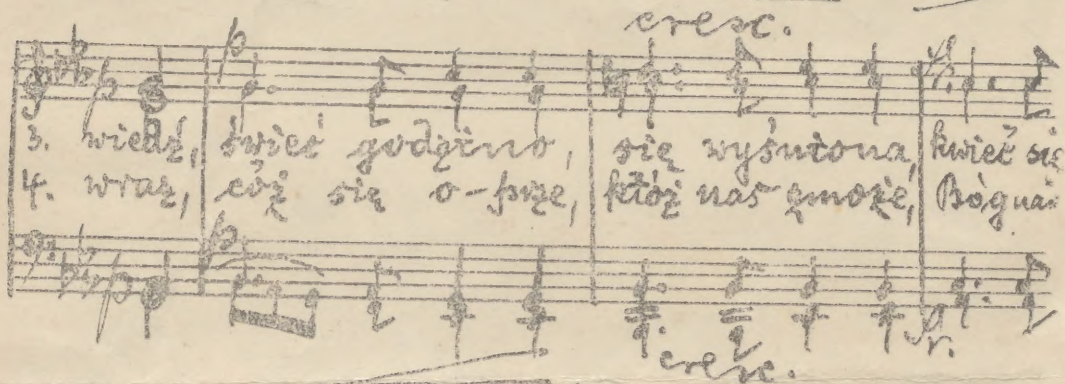 cresc.
3. wiedź, świeć godzino, się wyśniona, kwieć się
4. wraz, cóż się o-prze, któż nas zmoże, Bóg na
cresc.